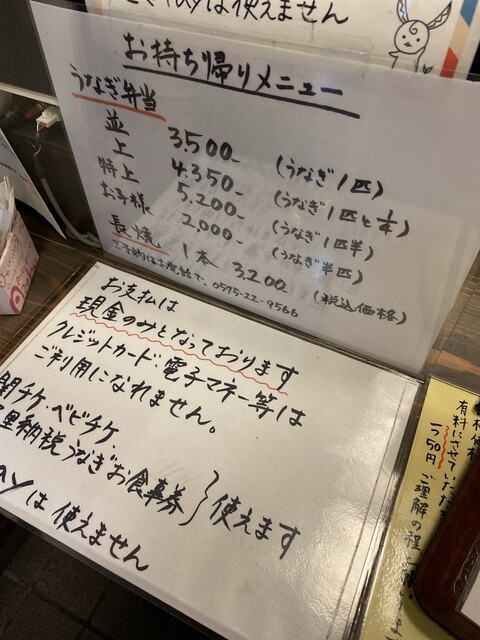 ayは使えません
お持ち帰りメニュー
うなぎ弁当
並 3,500- (うなぎ1匹)
上 4,350- (うなぎ1匹と1/4)
特上 5,200- (うなぎ1匹半)
お子様 2,000- (うなぎ半匹)
長焼 1本 3,200 (税込価格)
ご予約はお電話で、0575-22-9566
お支払は
現金のみとなっております
クレジットカード 電子マネー等は
ご利用になれません。
関チケ・ベビチケ・
里納税うなぎお食事券 } 使えます
ayは使えません
有料にさせていただき
50円
ご理解の程